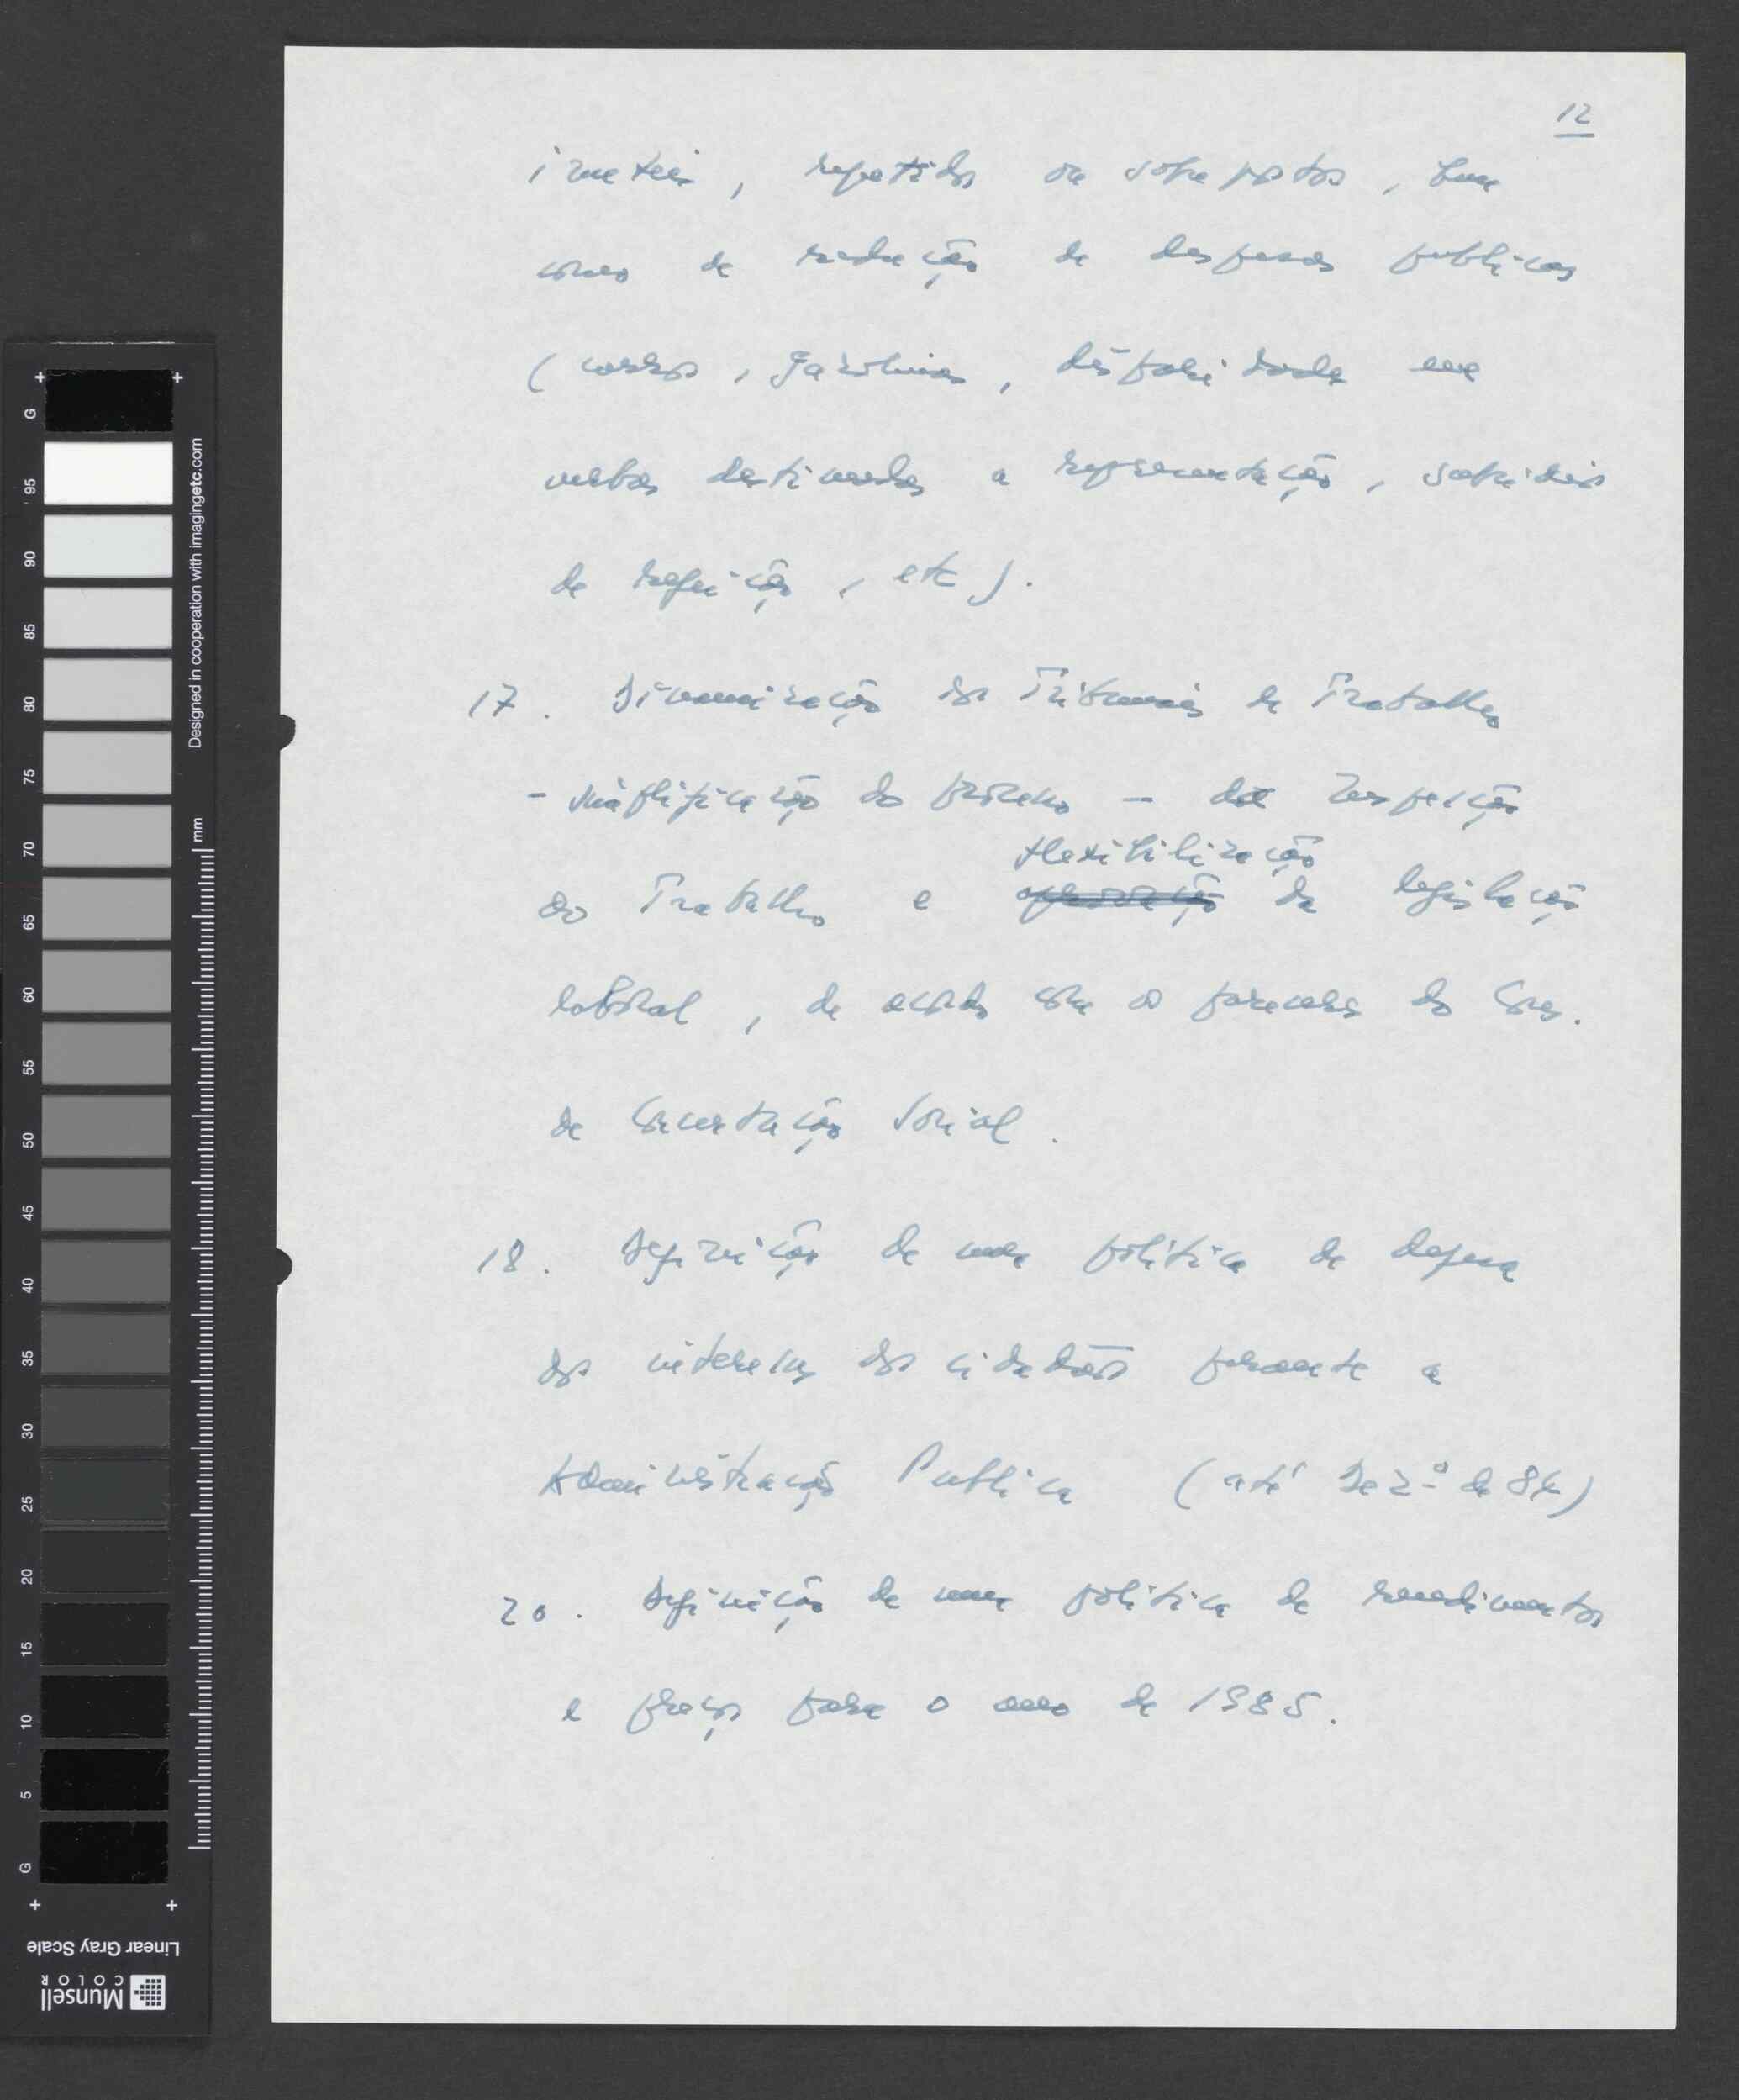 12
inuteis, repetidos ou sobrepostos, bem
como de redução de despesas publicas
(carros, gasolinas, disparidade em
verbas destinadas a representação, subsidios
de refeição, etc).
17. Dinamização dos Tribunais de Trabalho
- simplificação do processo - da Inspecção
flexibilização
do Trabalho e da legislação
laboral, de acordo com os pareceres do Cons.
de Concertação Social.
18. Definição de uma politica de defesa
dos interesses dos cidadãos perante a
Administração Publica (até Dez.º de 84)
20. Definição de uma politica de rendimentos
e preços para o ano de 1985.
Designed in cooperation with imagingetc.com
mm
G 95 90 85 80 75 70 65 60 55 50 45 40 35 30 25 20 15 10 5 G
Linear Gray Scale
Munsell
COLOR